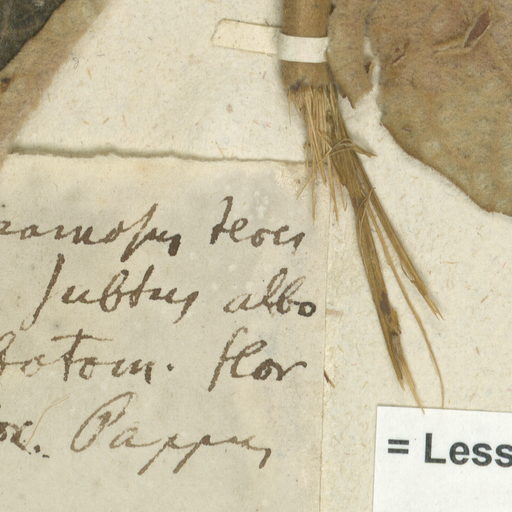 ramosus teres
subtus albo
botom. flor
Pappus
= Less